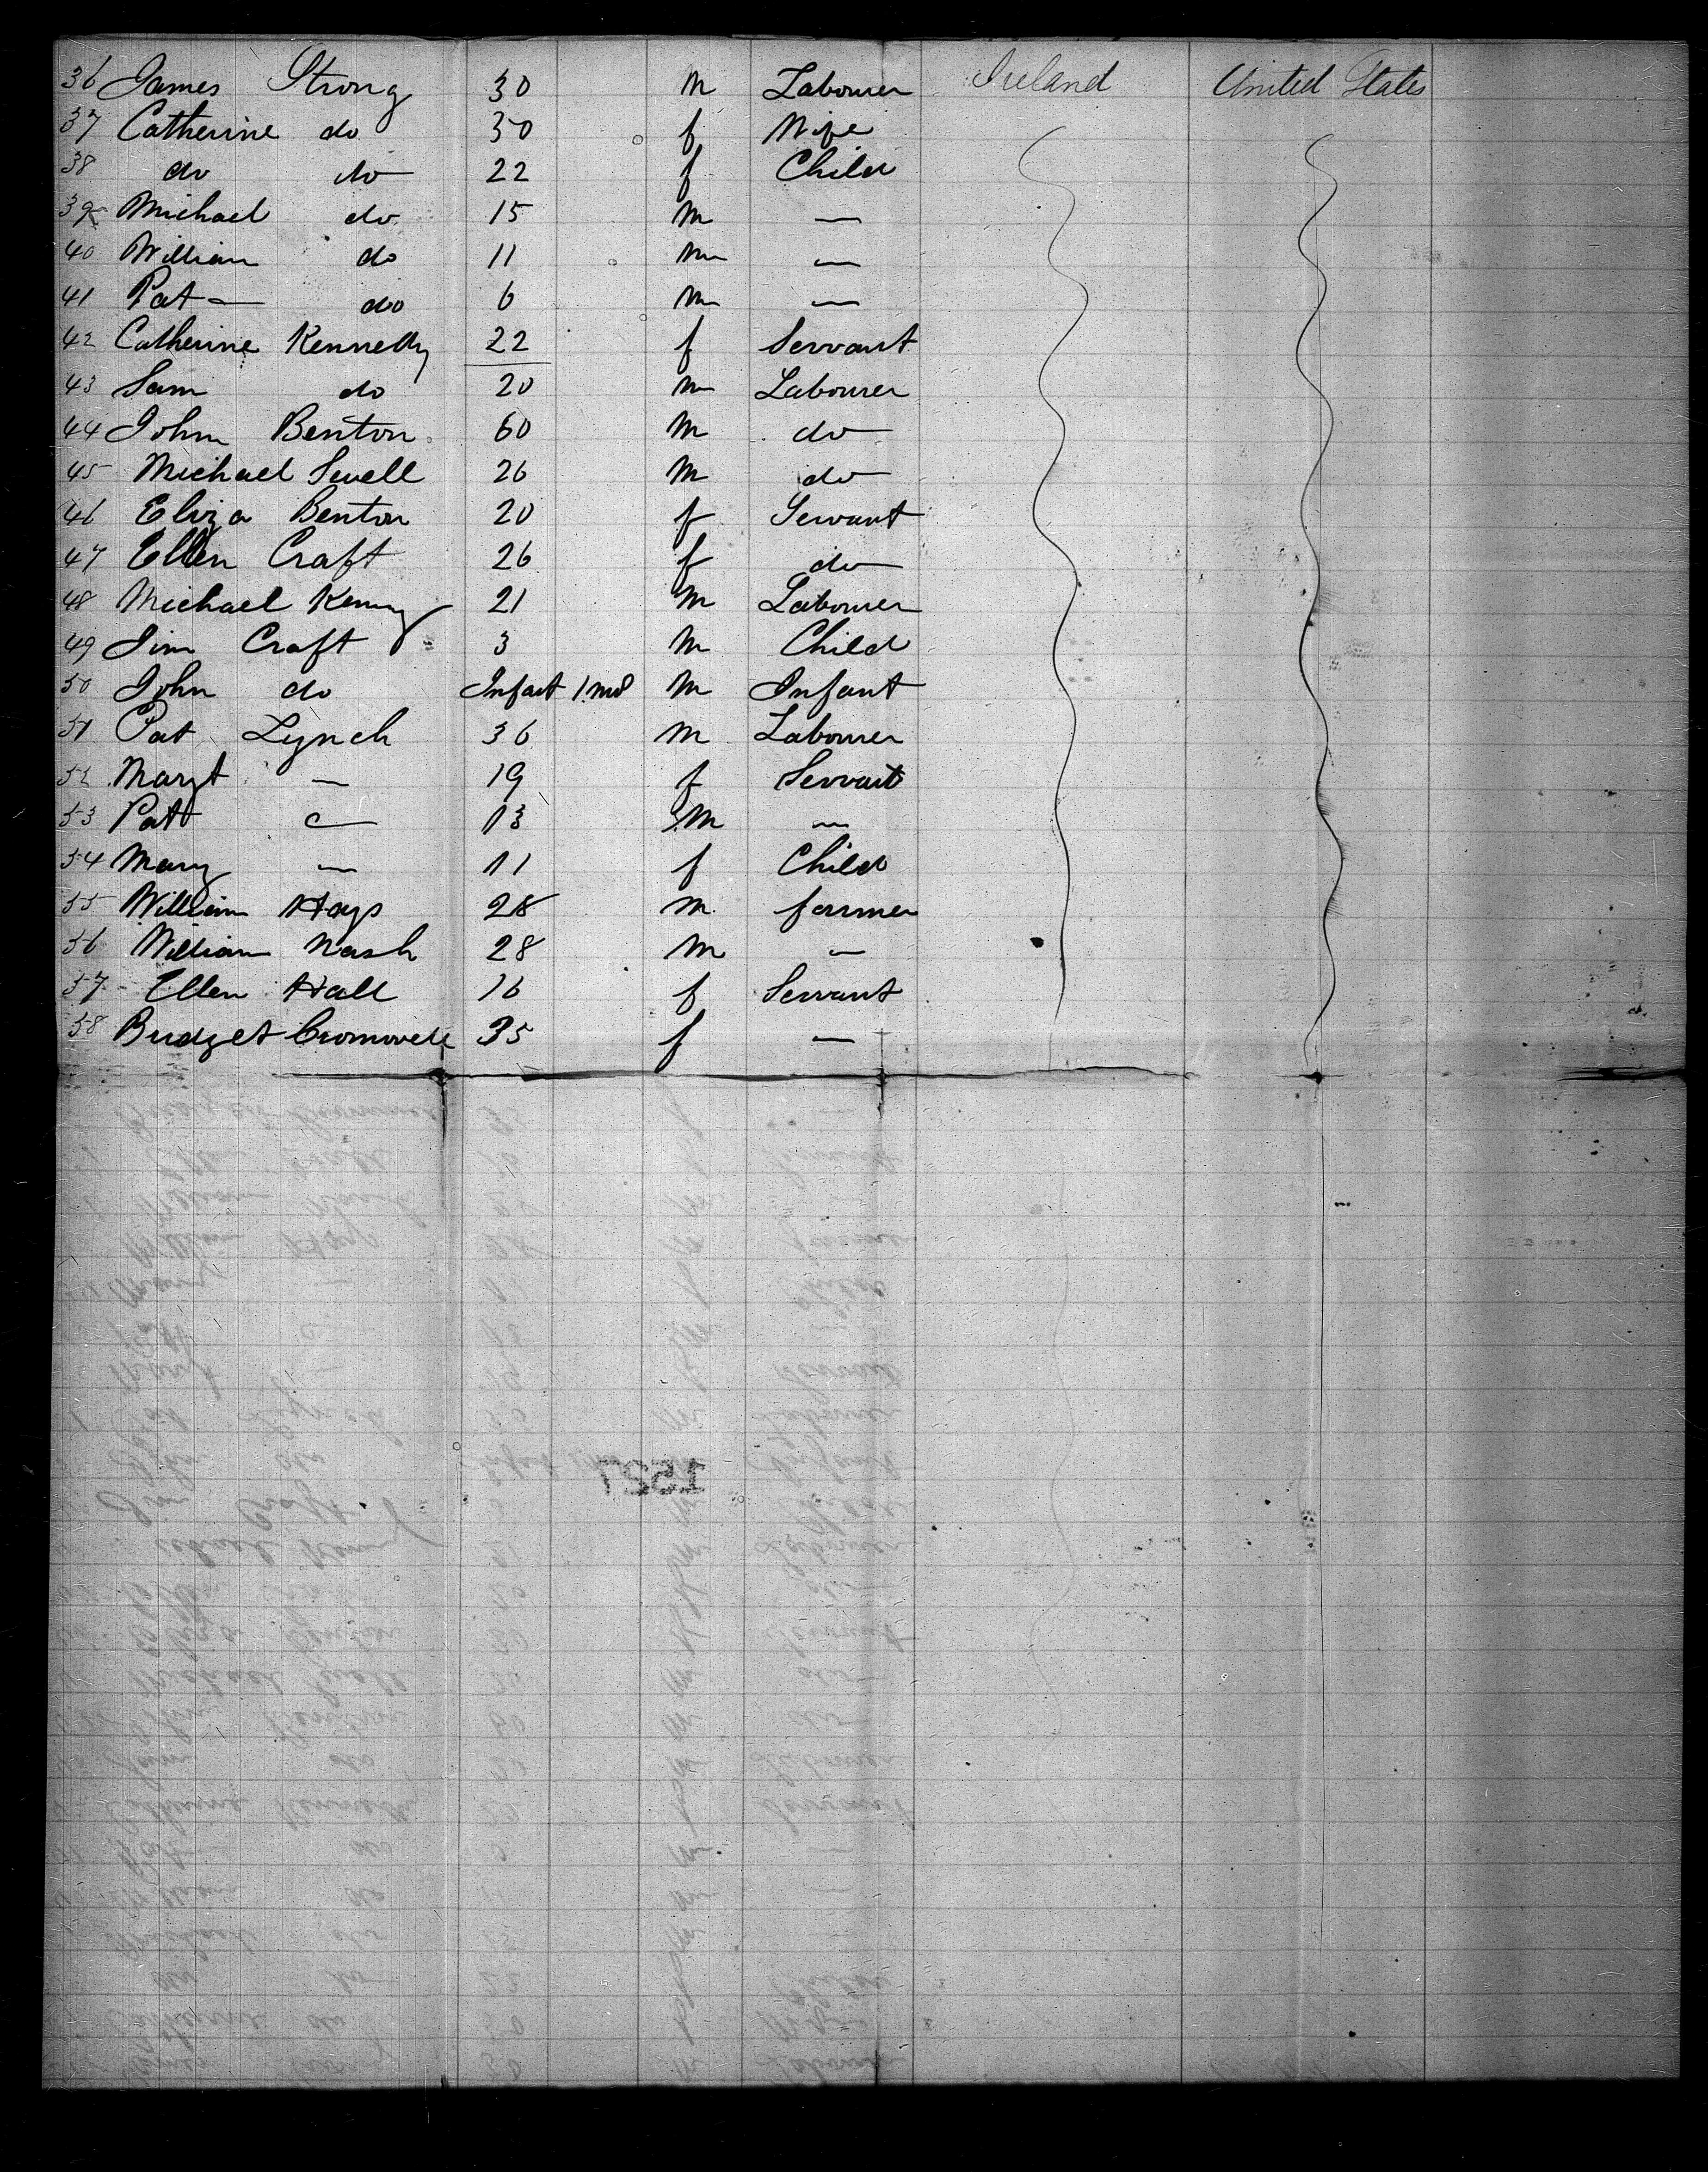 36 James Strong 30 m Labourer Ireland United States
37 Catherine do 30 f Wife
38 do do 22 f Child
39 Michael do 15 m —
40 William do 11 m —
41 Pat — do 6 m —
42 Catherine Kennelly 22 f Servant
43 Sam do 20 m Labourer
44 John Benton 60 m do
45 Michael Sewell 26 m do
46 Eliza Benton 20 f Servant
47 Ellen Craft 26 f do
48 Michael Kenny 21 m Labourer
49 Jim Craft 3 m Child
50 John do Infant 1 mo m Infant
51 Pat Lynch 36 m Labourer
52 Margt — 19 f Servant
53 Pat — 13 m —
54 Mary — 11 f Child
55 William Hays 28 m farmer
56 William Nash 28 m —
57 Ellen Hall 16 f Servant
58 Bridget 35 f —